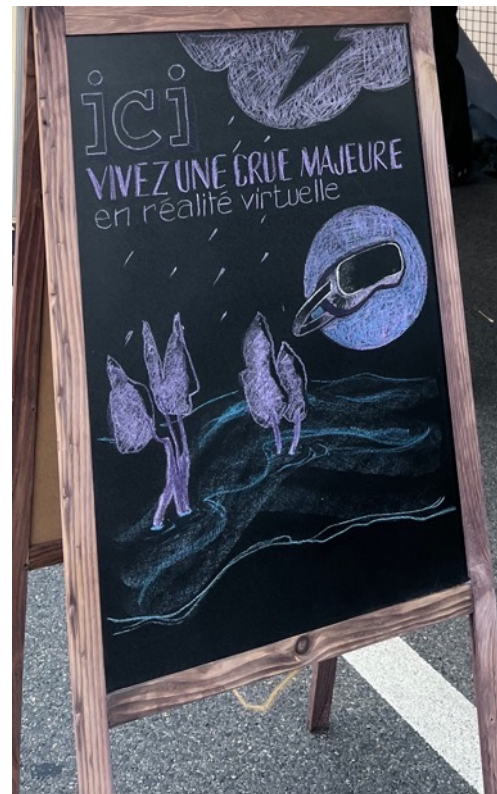 ici
VIVEZ UNE CRUE MAJEURE
en réalité virtuelle